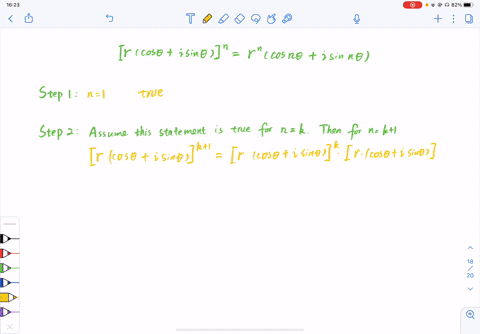 16:23
82%
[r (cosθ + i sinθ)]^n = r^n (cos nθ + i sin nθ)
Step 1: n=1 true
Step 2: Assume this statement is true for n=k. Then for n=k+1
[r (cosθ + i sinθ)]^{k+1} = [r·(cosθ + i sinθ)]^k · [r·(cosθ + i sinθ)]
18
/
20